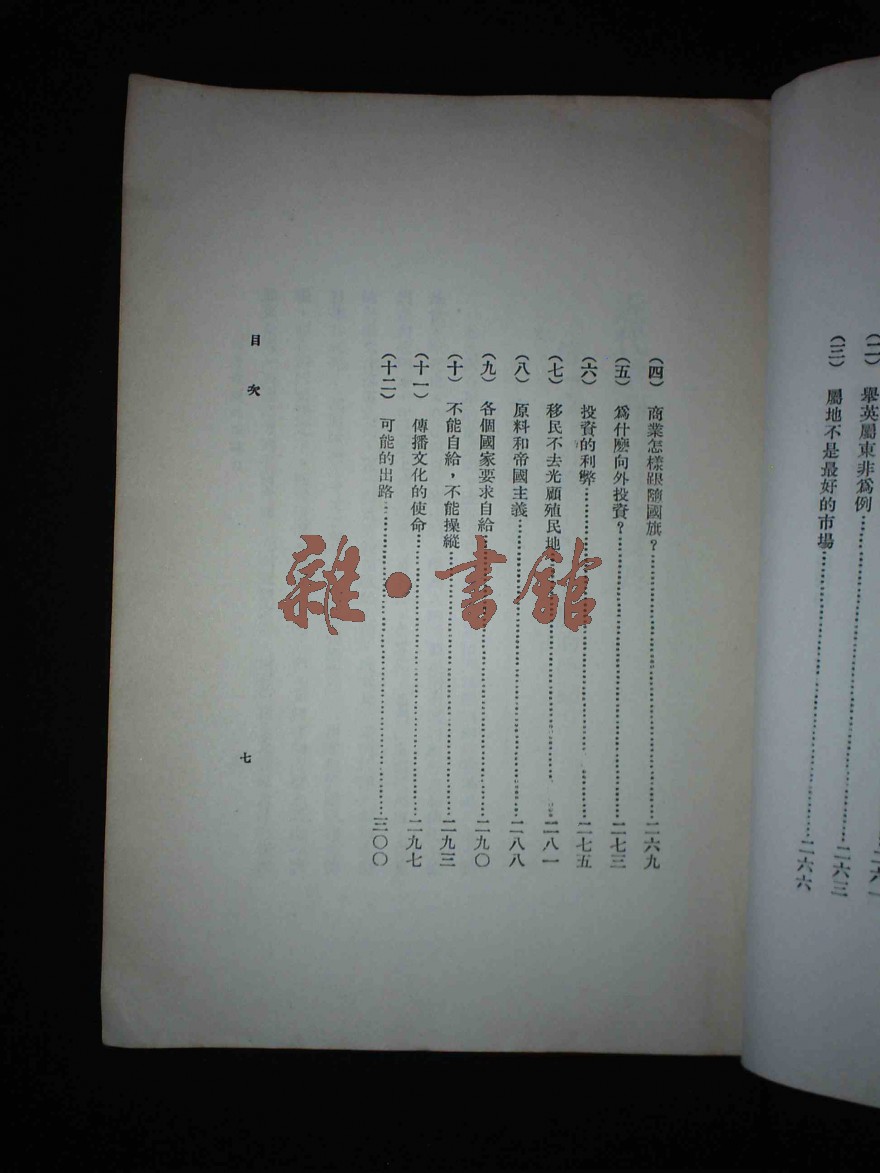 二六一
(二) 舉英屬東非爲例……二六三
(三) 屬地不是最好的市場……二六六
(四) 商業怎樣跟隨國旗？……二六九
(五) 爲什麽向外投資？……二七三
(六) 投資的利弊……二七五
(七) 移民不去光顧殖民地……二八一
(八) 原料和帝國主義……二八八
(九) 各個國家要求自給……二九〇
(十) 不能自給，不能操縱……二九三
(十一) 傳播文化的使命……二九七
(十二) 可能的出路……三〇〇
目次
七
雜·書館